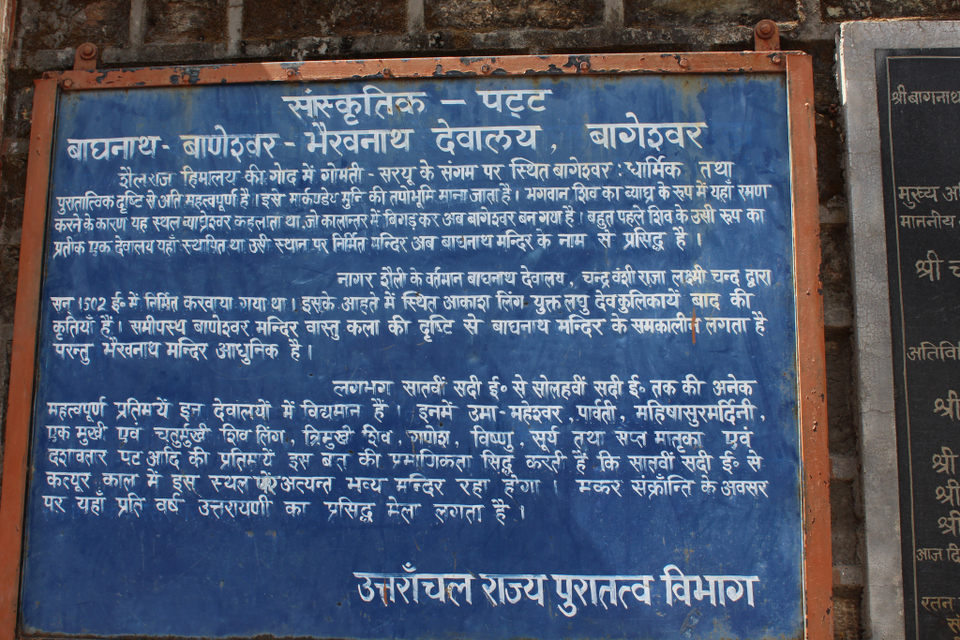 सांस्कृतिक - पट्ट
बाघनाथ - बाणेश्वर - भैरवनाथ देवालय, बागेश्वर
शैलराज हिमालय की गोद में गोमती - सरयू के संगम पर स्थित बागेश्वर : धार्मिक तथा
पुरातात्विक दृष्टि से अति महत्वपूर्ण है। इसे मार्कण्डेय मुनि की तपोभूमि माना जाता है। भगवान शिव का ब्याघ्र के रूप में यहाँ रमण
करने के कारण यह स्थल व्याघ्रेश्वर कहलाता था, जो कालान्तर में बिगड़ कर अब बागेश्वर बन गया है। बहुत पहले शिव के उसी रूप का
प्रतीक एक देवालय यहाँ स्थापित था उसी स्थान पर निर्मित मन्दिर अब बाघनाथ मन्दिर के नाम से प्रसिद्ध है।
नागर शैली के वर्तमान बाघनाथ देवालय, चन्द्र वंशी राजा लक्ष्मी चन्द द्वारा
सन् 1502 ई० में निर्मित करवाया गया था। इसके आहते में स्थित आकाश लिंग युक्त लघु देवकुलिकायें बाद की
कृतियाँ हैं। समीपस्थ बाणेश्वर मन्दिर वास्तु कला की दृष्टि से बाघनाथ मन्दिर के समकालीन लगता है
परन्तु भैरवनाथ मन्दिर आधुनिक है।
लगभग सातवीं सदी ई० से सोलहवीं सदी ई० तक की अनेक
महत्वपूर्ण प्रतिमायें इन देवालयों में विद्यमान हैं। इनमें उमा-महेश्वर, पार्वती, महिषासुरमर्दिनी,
एक मुखी एवं चतुर्मुखी शिव लिंग, त्रिमुखी शिव, गणेश, विष्णु, सूर्य तथा सप्त मातृका एवं
दशावतार पट आदि की प्रतिमायें इस बात की प्रमाणिकता सिद्ध करती हैं कि सातवीं सदी ई० से
कत्यूर काल में इस स्थल पर अत्यन्त भव्य मन्दिर रहा होगा। मकर संक्रान्ति के अवसर
पर यहाँ प्रति वर्ष उत्तरायणी का प्रसिद्ध मेला लगता है।
उत्तराँचल राज्य पुरातत्व विभाग
श्री बागनाथ
मुख्य
माननीय
श्री
श्री
श्री
श्री
श्री
आज
रतन